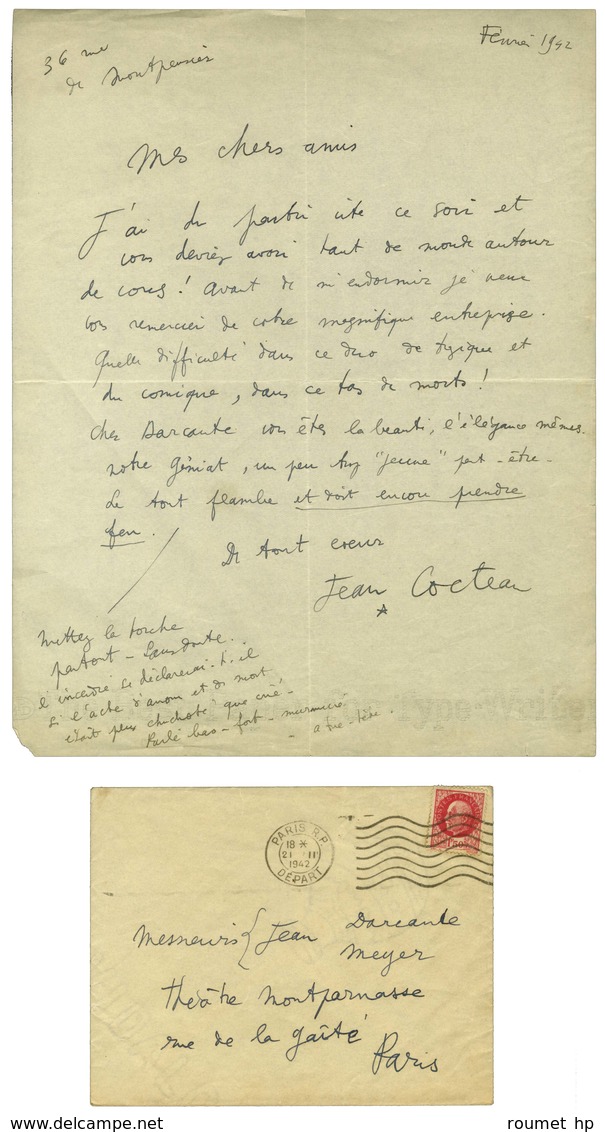 Février 1942
36 rue
de Montpensier
Mes chers amis
J'ai du partir vite ce soir et
vous deviez avoir tant de monde autour
de vous ! Avant de m'endormir je veux
vous remercier de votre magnifique entreprise.
Quelle difficulté dans ce duo de tragique et
du comique, dans ce tas de morts !
Cher Darcante vous êtes la beauté, l'élégance mêmes.
notre Géniat, un peu trop "jeune" peut-être.
Le tout flambe et doit encore prendre
feu.
De tout cœur
Jean Cocteau
Mettez la torche
partout - Sans doute..
l'incendie se déclarerai-t-il
si l'acte d'amour et de mort
était plus chuchoté que crié -
Parlé bas - fort - murmuré
- a tue-tête.
PARIS R.P.
18 *
21 II
1942
DÉPART
1F50
Messieurs { Jean Darcante
Meyer
théâtre Montparnasse
rue de la gaîté
Paris
roumet hp